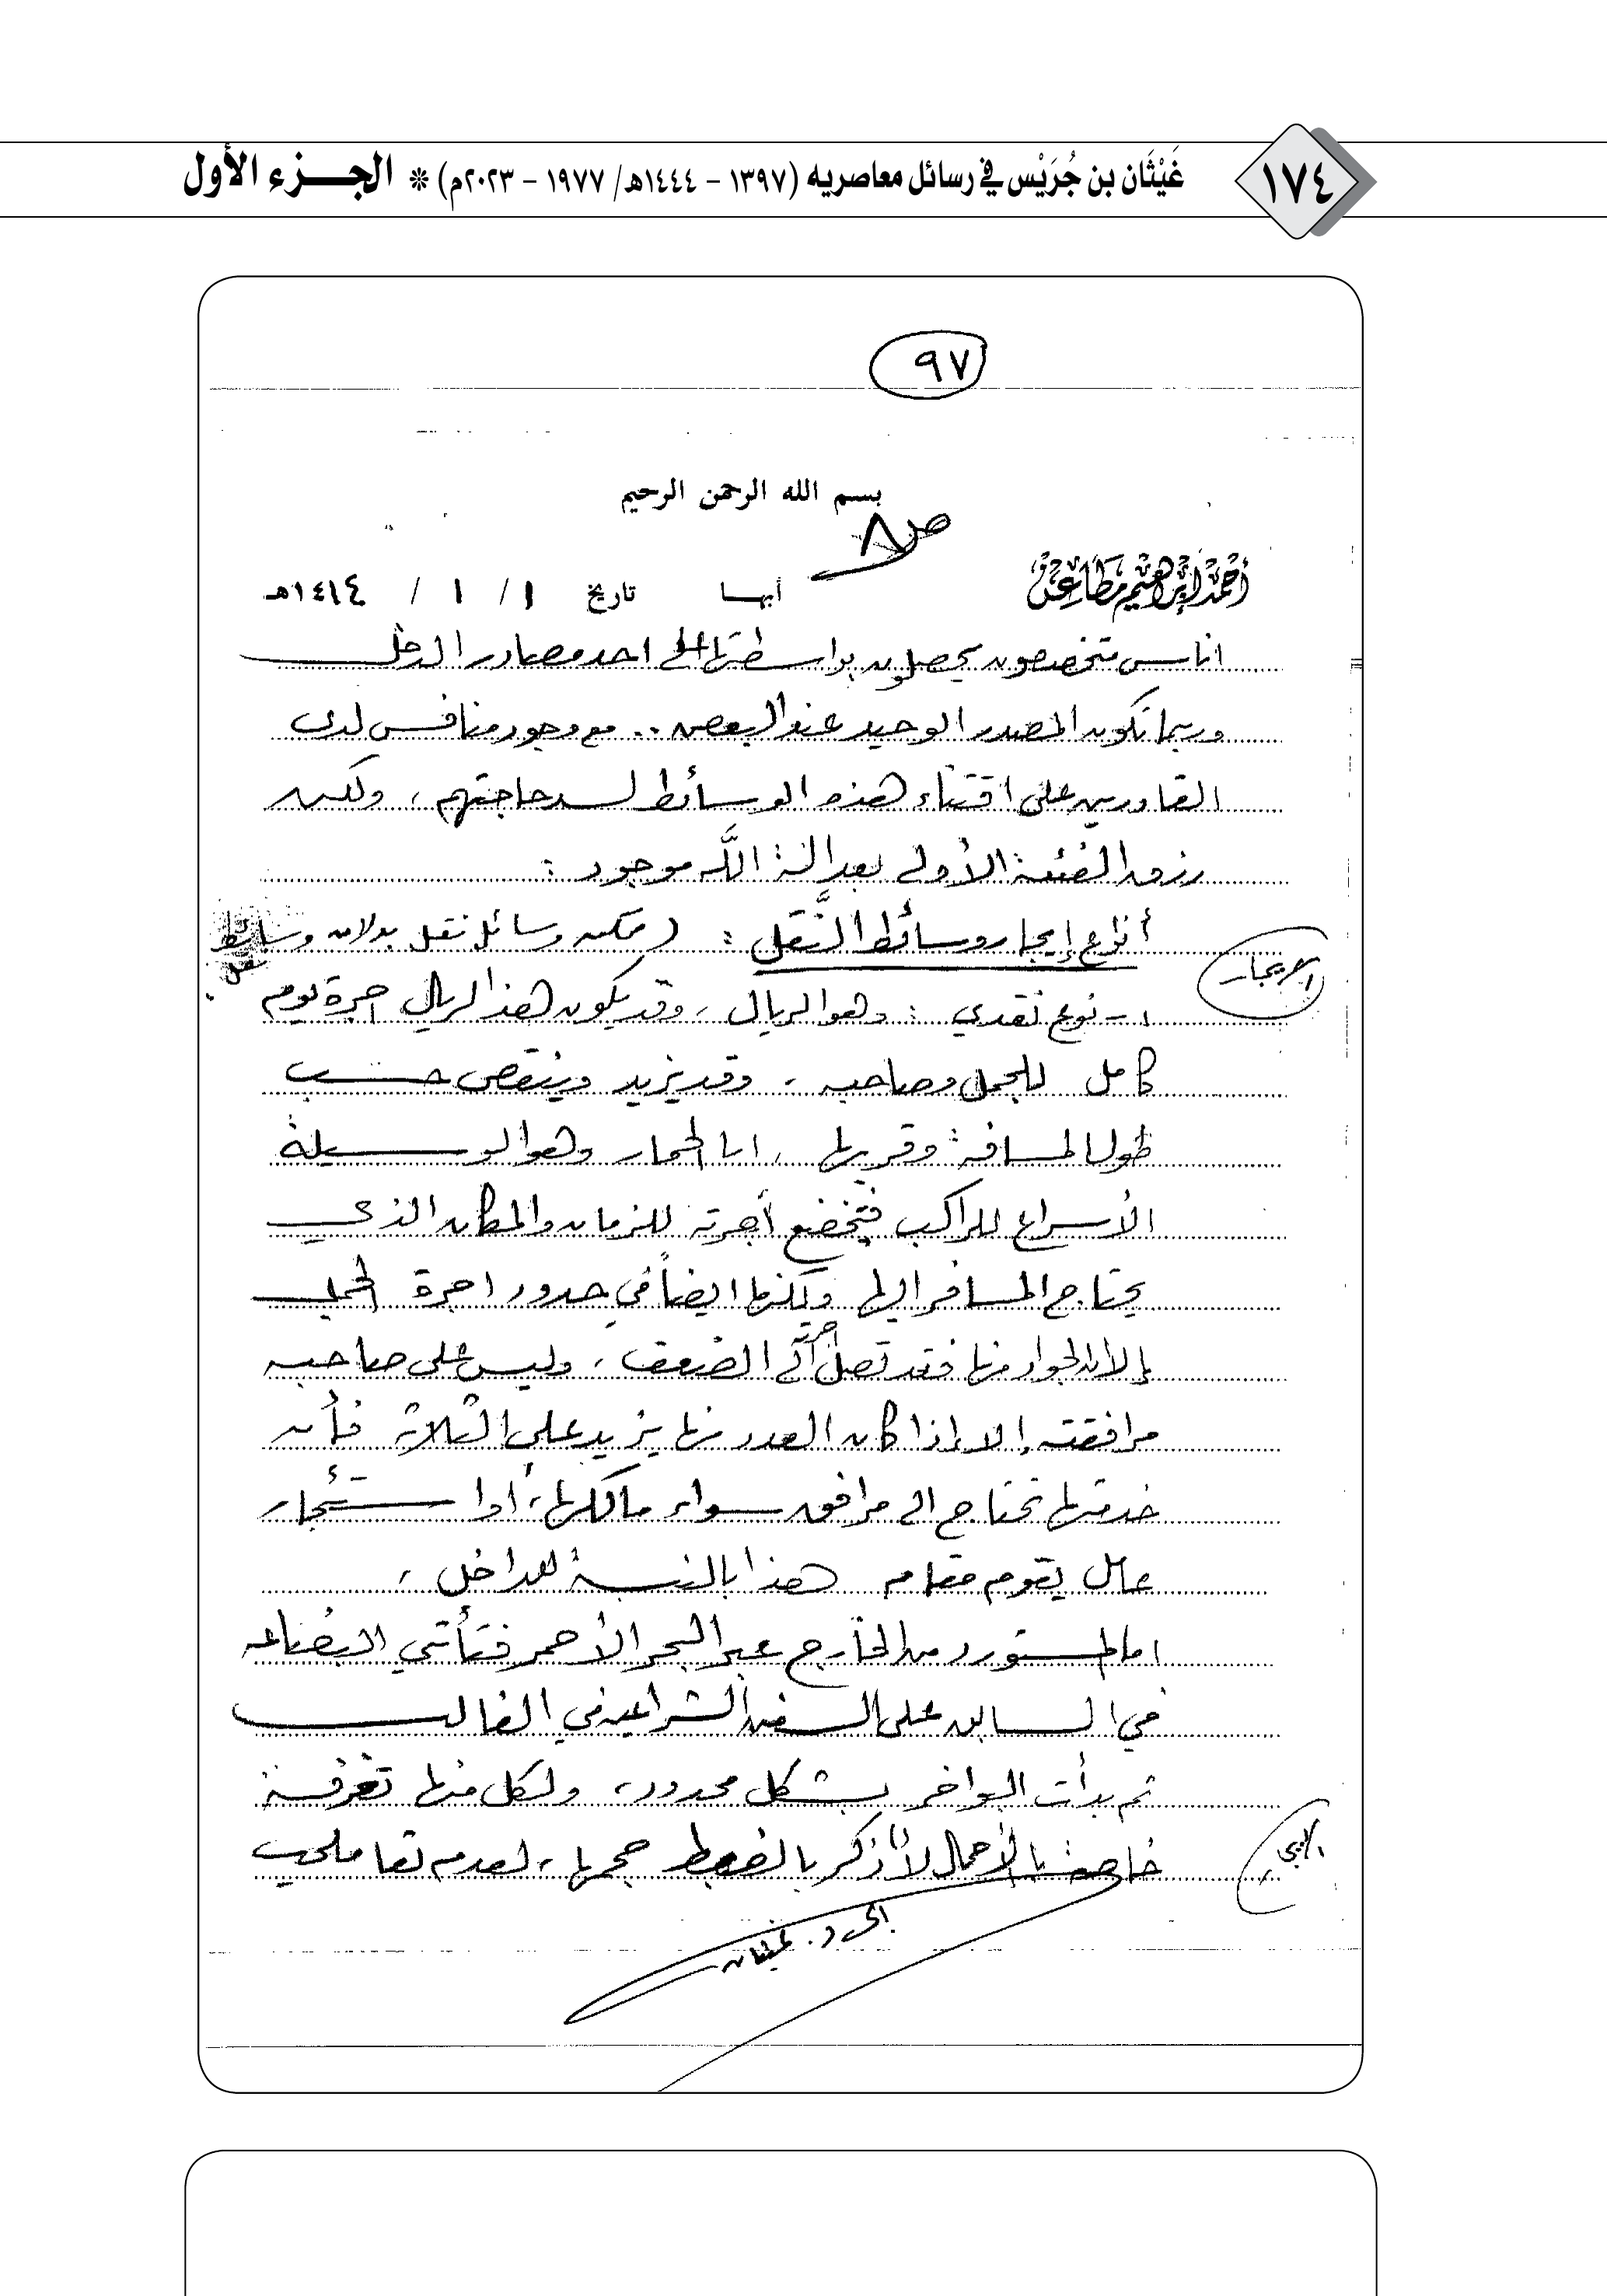 ١٧٤
غَيْثَان بن جُرَيْس في رسائل معاصريه (١٣٩٧ - ١٤٤٤هـ/ ١٩٧٧ - ٢٠٢٣م) * الجزء الأول
٩٧
بسم الله الرحمن الرحيم
ص٨
أحمد إبراهيم مطاعن
أبها تاريخ ١ / ١ / ١٤١٤هـ
اناس متخصصون يحصلون بواسطتها على احد مصادر الدخل
وربما تكون المصدر الوحيد عند البعض .. مع وجود منافس لدى
القادرين على اقتناء هذه الوسائط لسد حاجتهم ، ولكن
رزق الفئة الأولى بعد الله موجود :
أنواع إيجار وسائط النَّقل : (مكن وسائل نقل بدلا من وسائط نقل
الايجار
١- نوع نقدي : وهو الريال ، وقد يكون هذا الريال اجرة يوم
كامل للجمل وصاحبه ، وقد يزيد وينقص حسب
طول المسافة وقربها ، اما الحمار وهو الوسيلة
الأسراع للراكب فتخضع أجرته للزمان والمكان الذي
يحتاج المسافر اليها ولكنها ايضاً في حدود اجرة الجمل
إلا ان الجواد منها فقد تصل أجرته الى الضعف ، وليس على صاحبه
مرافقته إلا إذا كان العدد منها يزيد على الثلاثة فأن
خدمتها تحتاج الى مرافق سواء مالكها ، أو استئجار
عامل يقوم مقامه هذا بالنسبة للداخل ،
اما المستورد من الخارج عبر البحر الأحمر فتأتي البضاعه
في السابق على السفن الشراعيه في الغالب
ثم بدأت البواخر بشكل محدود ، ولكل منها تعرفة
خاصة بالأحمال لا أذكر بالضبط حجمها ، لعدم تعاملي
الى د. غيثان